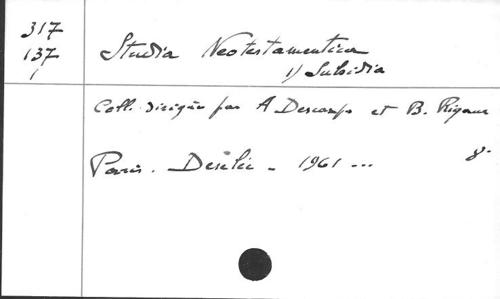 317
137
1
Studia Neotestamentica
1) Subsidia
Coll. dirigée par A Descamps et B. Rigaux
Paris. Desclée - 1961 ...
8.